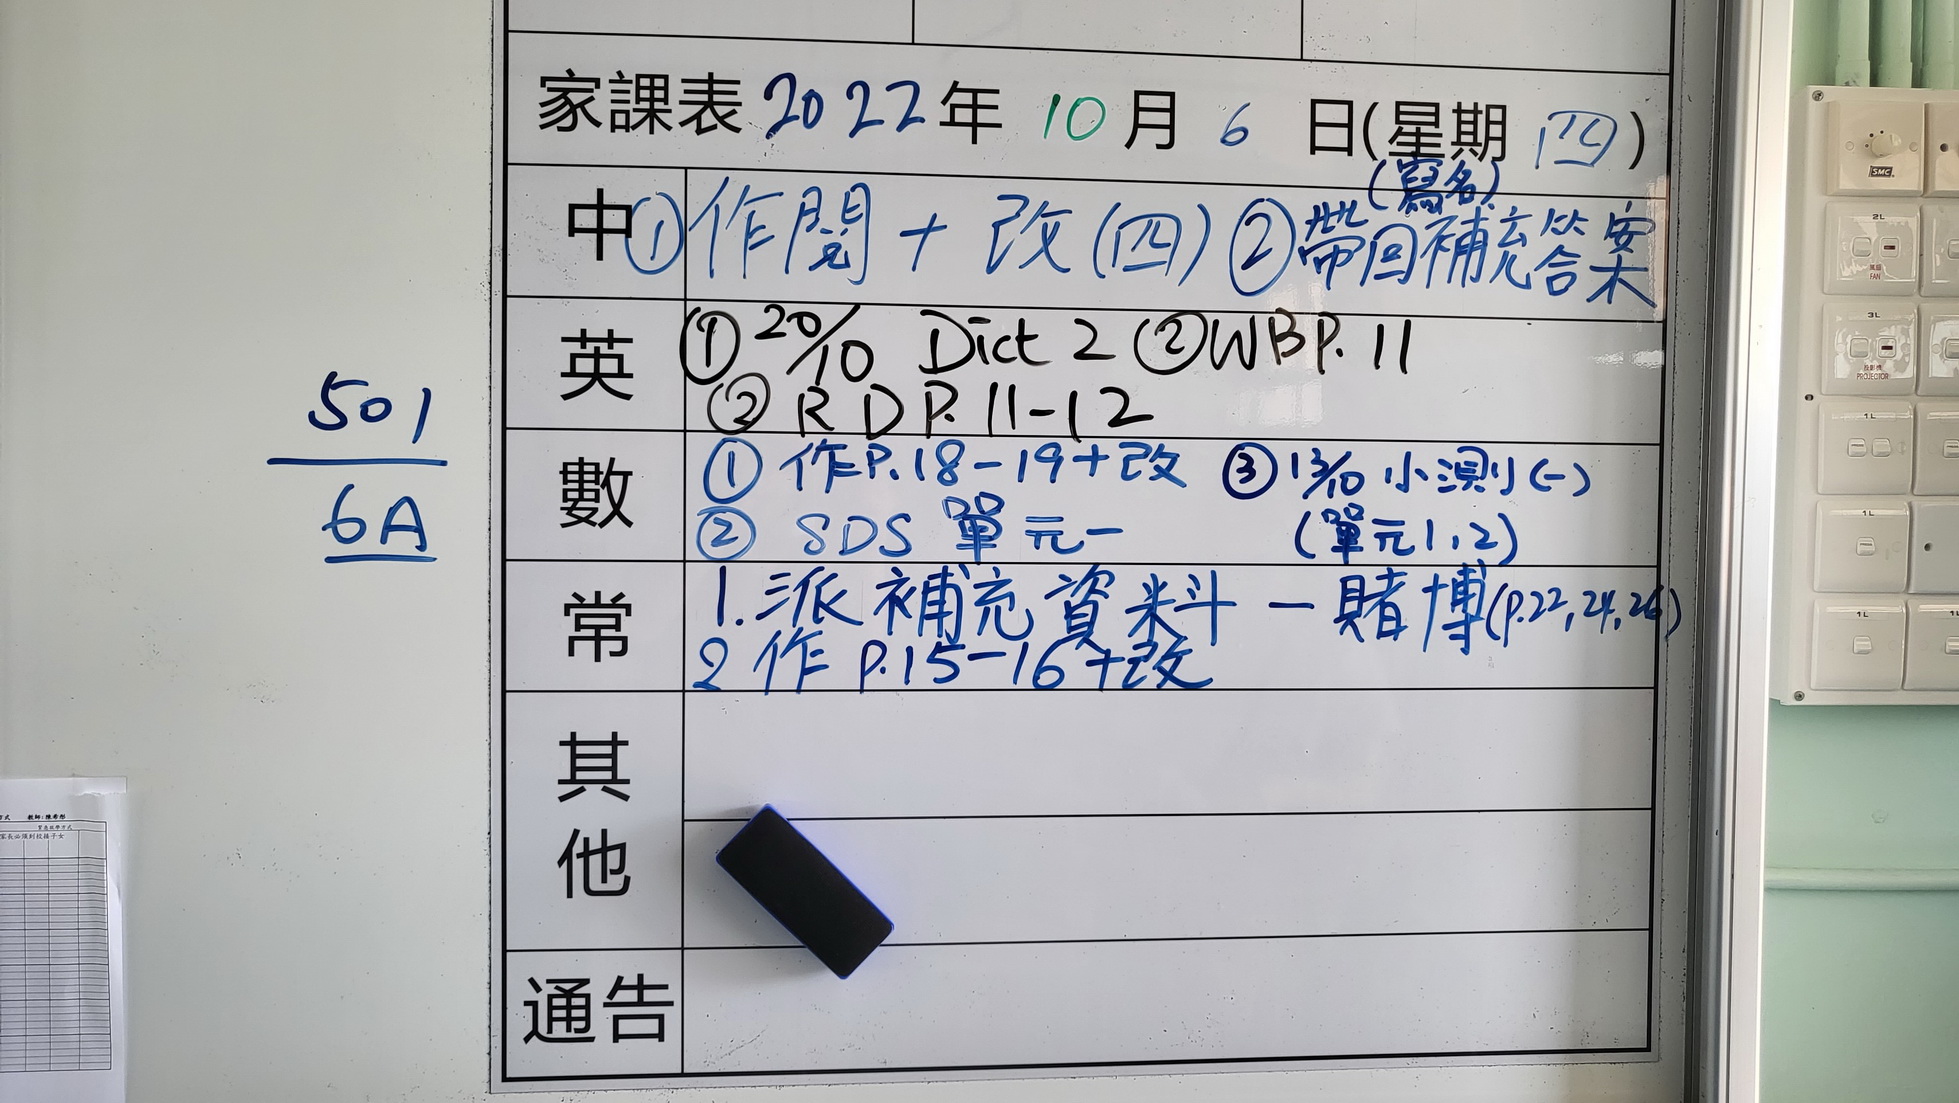 家課表 2022年 10月 6日(星期四)
(寫名)
中 ①作閱+改(四) ②帶回補充答案
英 ① 20/10 Dict 2 ② WB P.11
② RD P.11-12
數 ① 作P.18-19+改 ③ 13/10 小測(一)
② SDS 單元一 (單元1,2)
常 1. 派補充資料 - 賭博(p.22,24,26)
2 作 P.15-16+改
其他
通告
501
6A
SMC
2L
風扇
FAN
3L
投影機
PROJECTOR
1L
1L
1L
1L